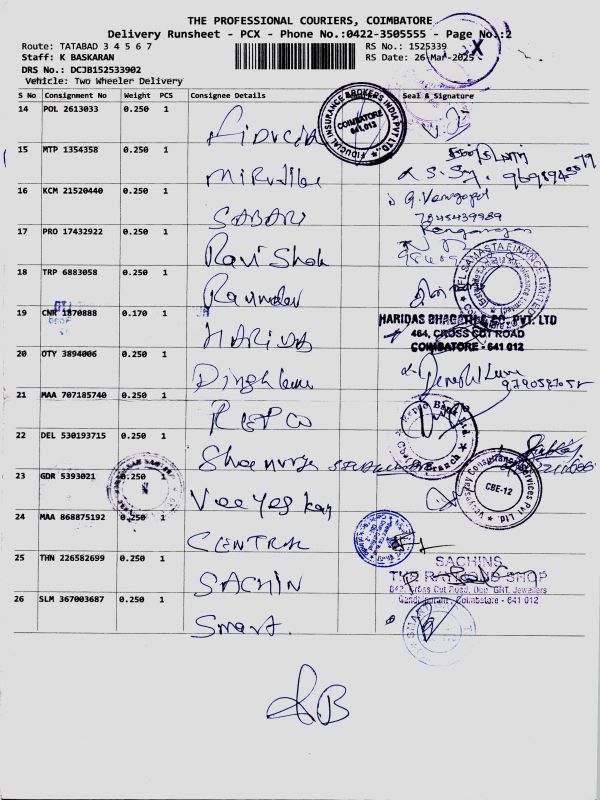 THE PROFESSIONAL COURIERS, COIMBATORE
Delivery Runsheet - PCX - Phone No.:0422-3505555 - Page No.:2
Route: TATABAD 3 4 5 6 7 RS No.: 1525339
Staff: K BASKARAN RS Date: 26-Mar-2025
DRS No.: DCJB152533902
Vehicle: Two Wheeler Delivery
S No Consignment No Weight PCS Consignee Details Seal & Signature
14 POL 2613033 0.250 1 Fiducia
FIDUCIAL INSURANCE BROKERS INDIA PVT LTD.
COIMBATORE
641 012
15 MTP 1354358 0.250 1
16 KCM 21520440 0.250 1 SABARI G. Venugopal
17 PRO 17432922 0.250 1 Ravi Shok
18 TRP 6883058 0.250 1 Ravinder
19 CNR 1870888 0.170 1 HARIDAS
HARIDAS BHAGATH & CO. PVT. LTD
464, CROSS CUT ROAD
COIMBATORE - 641 012
20 OTY 3894006 0.250 1
21 MAA 707185740 0.250 1 REPCO
Repco Bank Ltd.
Branch
22 DEL 530193715 0.250 1
23 GDR 5393021 0.250 1 Vee yes kay
Veeyeskay Consultancy Services Pvt. Ltd.
CBE-12
24 MAA 868875192 0.250 1 CENTRAL
25 THN 226582699 0.250 1 SACHIN
SACHINS
THE RAYMOND SHOP
Cross Cut Road, Opp. GRT. Jewellers
Gandhipuram, Coimbatore - 641 012
26 SLM 367003687 0.250 1 Smart.